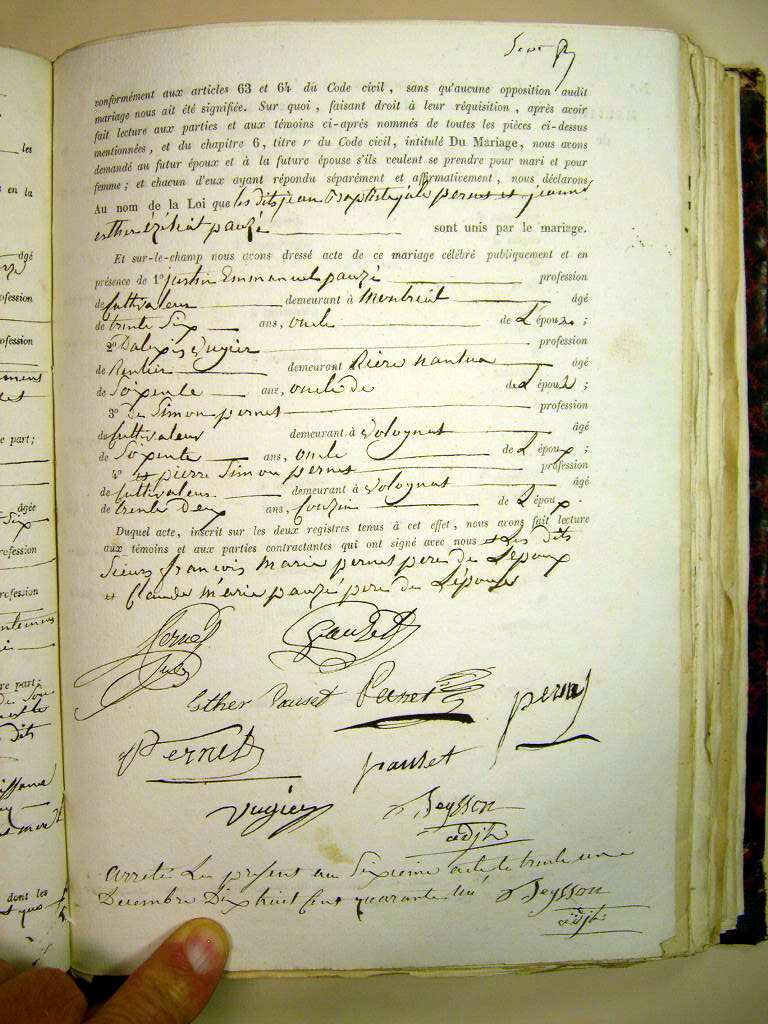 conformément aux articles 63 et 64 du Code civil, sans qu'aucune opposition audit
mariage nous ait été signifiée. Sur quoi, faisant droit à leur réquisition, après avoir
fait lecture aux parties et aux témoins ci-après nommés de toutes les pièces ci-dessus
mentionnées, et du chapitre 6, titre v du Code civil, intitulé Du Mariage, nous avons
demandé au futur époux et à la future épouse s'ils veulent se prendre pour mari et pour
femme; et chacun d'eux ayant répondu séparément et affirmativement, nous déclarons
Au nom de la Loi que les dits jean Baptiste jule pernet et jeanne
esther pauzé sont unis par le mariage.
Et sur-le-champ nous avons dressé acte de ce mariage célébré publiquement et en
présence de 1° justin Emmanuel pauzé profession
de Cultivateur demeurant à Montréal âgé
de trente Six ans, oncle de L'épouse;
2° Dalexis Vugier profession
de Rentier demeurant Rière nantua âgé
de Soixente ans, oncle de de L'épouse;
3° De Simon pernet profession
de Cultivateur demeurant à Volognat âgé
de Soxente ans, oncle de L'époux;
4° et pierre Simon pernet profession
de Cultivateur demeurant à Volognat âgé
de trente Deux ans, Couzin de L'époux.
Duquel acte, inscrit sur les deux registres tenus à cet effet, nous avons fait lecture
aux témoins et aux parties contractantes qui ont signé avec nous et Les dits
Sieurs françois Marie pernet pere de L'époux
et Claude Marie pauzé pere de L'épouse
Pernet
Jules
Pauset
Esther Pauset
Pernet
Pernet
pauset
Vugier
Seysson
adjt
Arreté Le present au Sixieme acte le trente une
Decembre Dix huit Cent quarante Seysson
adjt
les
en la
âgé
profession
profession
e part;
âgée
Six
profession
profession
re part;
dits
dont les